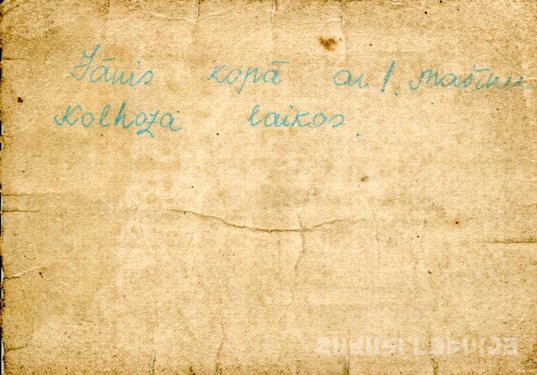 Jānis kopā ar 1. mašīnu
Kolhoza laikos.